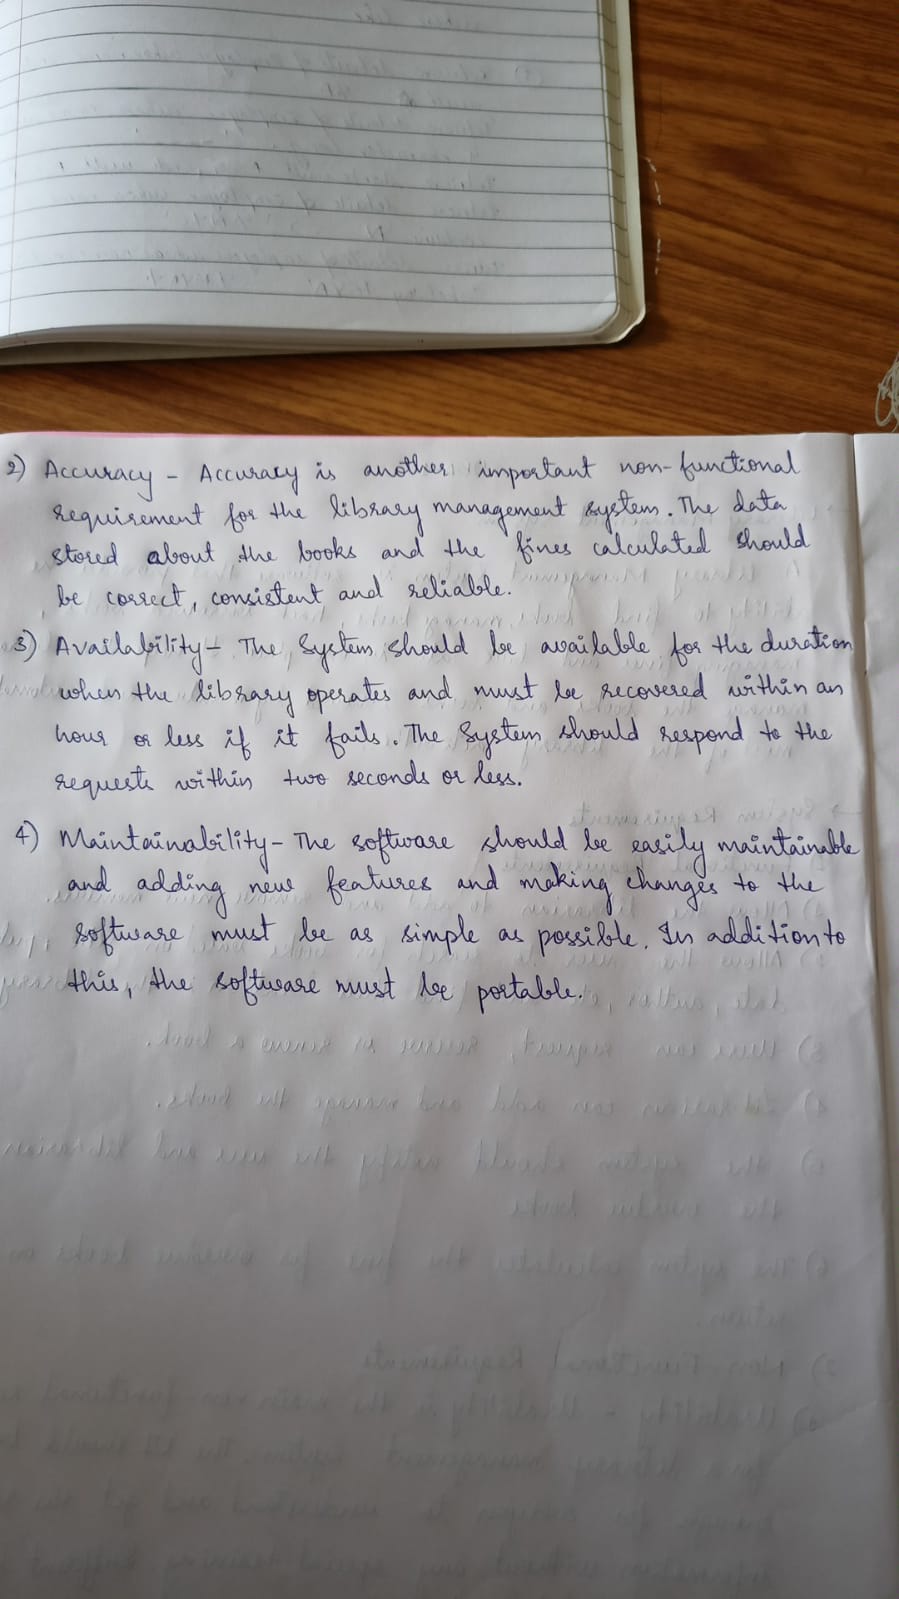 2) Accuracy - Accuracy is another important non-functional
requirement for the library management system. The data
stored about the books and the fines calculated should
be correct, consistent and reliable.
3) Availability - The System should be available for the duration
when the library operates and must be recovered within an
hour or less if it fails. The System should respond to the
requests within two seconds or less.
4) Maintainability - The software should be easily maintainable
and adding new features and making changes to the
software must be as simple as possible. In addition to
this, the software must be portable.